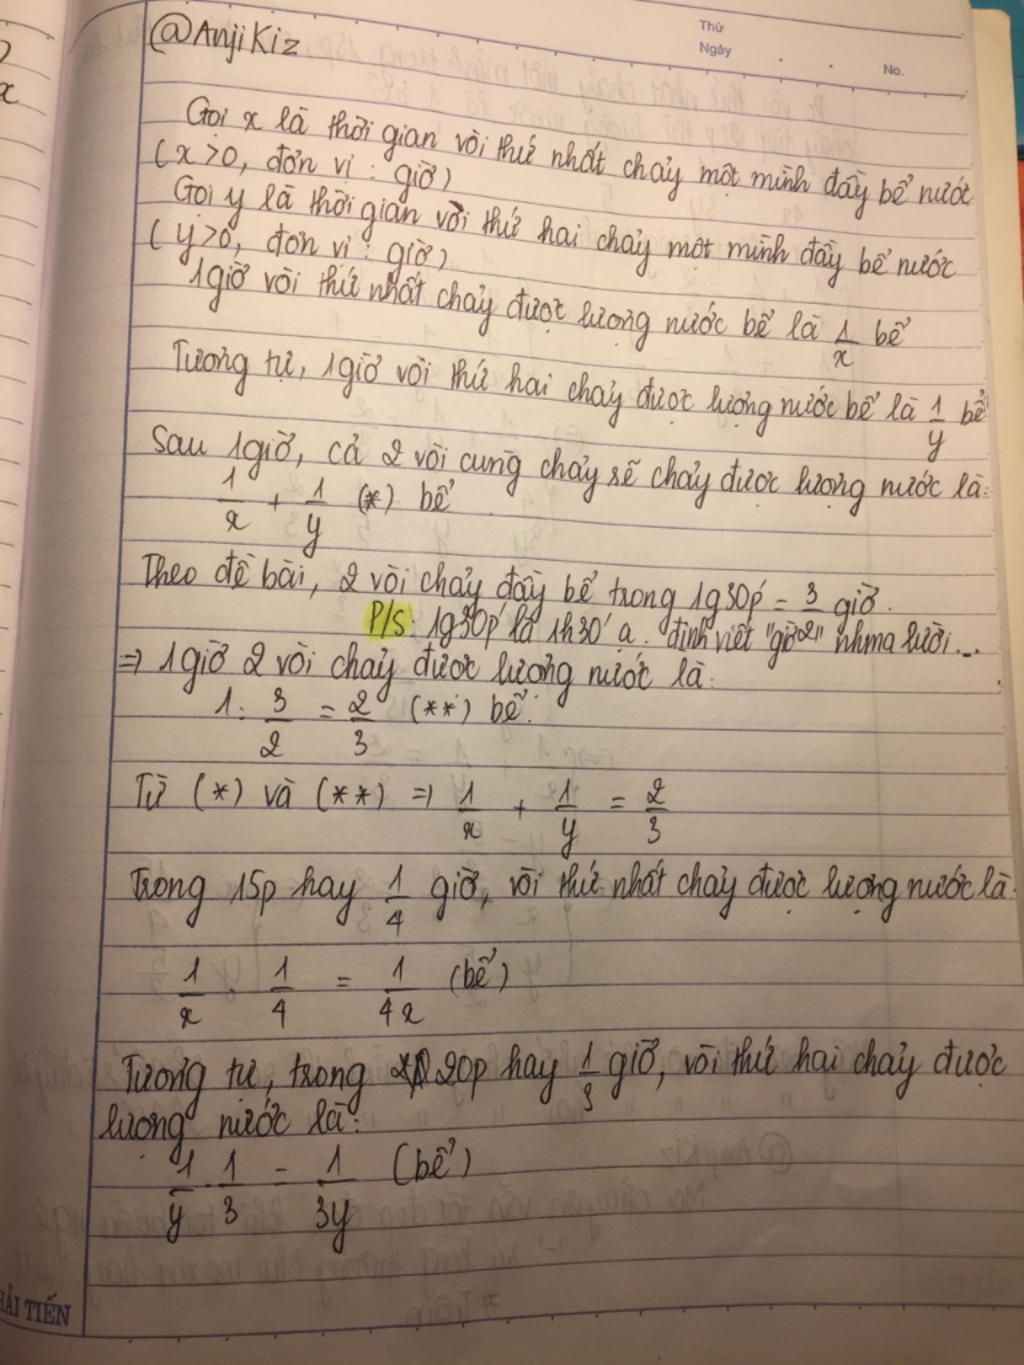 @AnjiKiz
Thứ
Ngày
No.
Gọi x là thời gian vòi thứ nhất chảy một mình đầy bể nước
(x>0, đơn vị : giờ)
Gọi y là thời gian vời thứ hai chảy một mình đầy bể nước
(y>0, đơn vị : giờ)
1giờ vòi thứ nhất chảy được lượng nước bể là 1/x bể
Tương tự, 1giờ vòi thứ hai chảy được lượng nước bể là 1/y bể
Sau 1giờ, cả 2 vòi cùng chảy sẽ chảy được lượng nước là:
1/x + 1/y (*) bể
Theo đề bài, 2 vòi chảy đầy bể trong 1g30p' = 3 giờ.
P/S: 1g30p' là 1h30' ạ. định viết "giờ2" nhma lười...
=> 1giờ 2 vòi chảy được lượng nước là:
1: 3/2 = 2/3 (**) bể.
Từ (*) và (**) => 1/x + 1/y = 2/3
Trong 15p hay 1/4 giờ, vòi thứ nhất chảy được lượng nước là:
1/x . 1/4 = 1/4x (bể)
Tương tự, trong 20p hay 1/3 giờ, vòi thứ hai chảy được
lượng nước là:
1/y . 1/3 = 1/3y (bể)
HẢI TIẾN